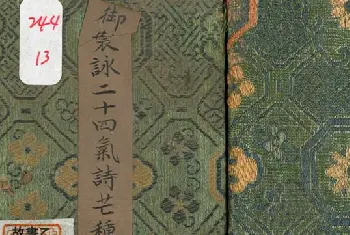 244
13
御製詠二十四氣詩芒種